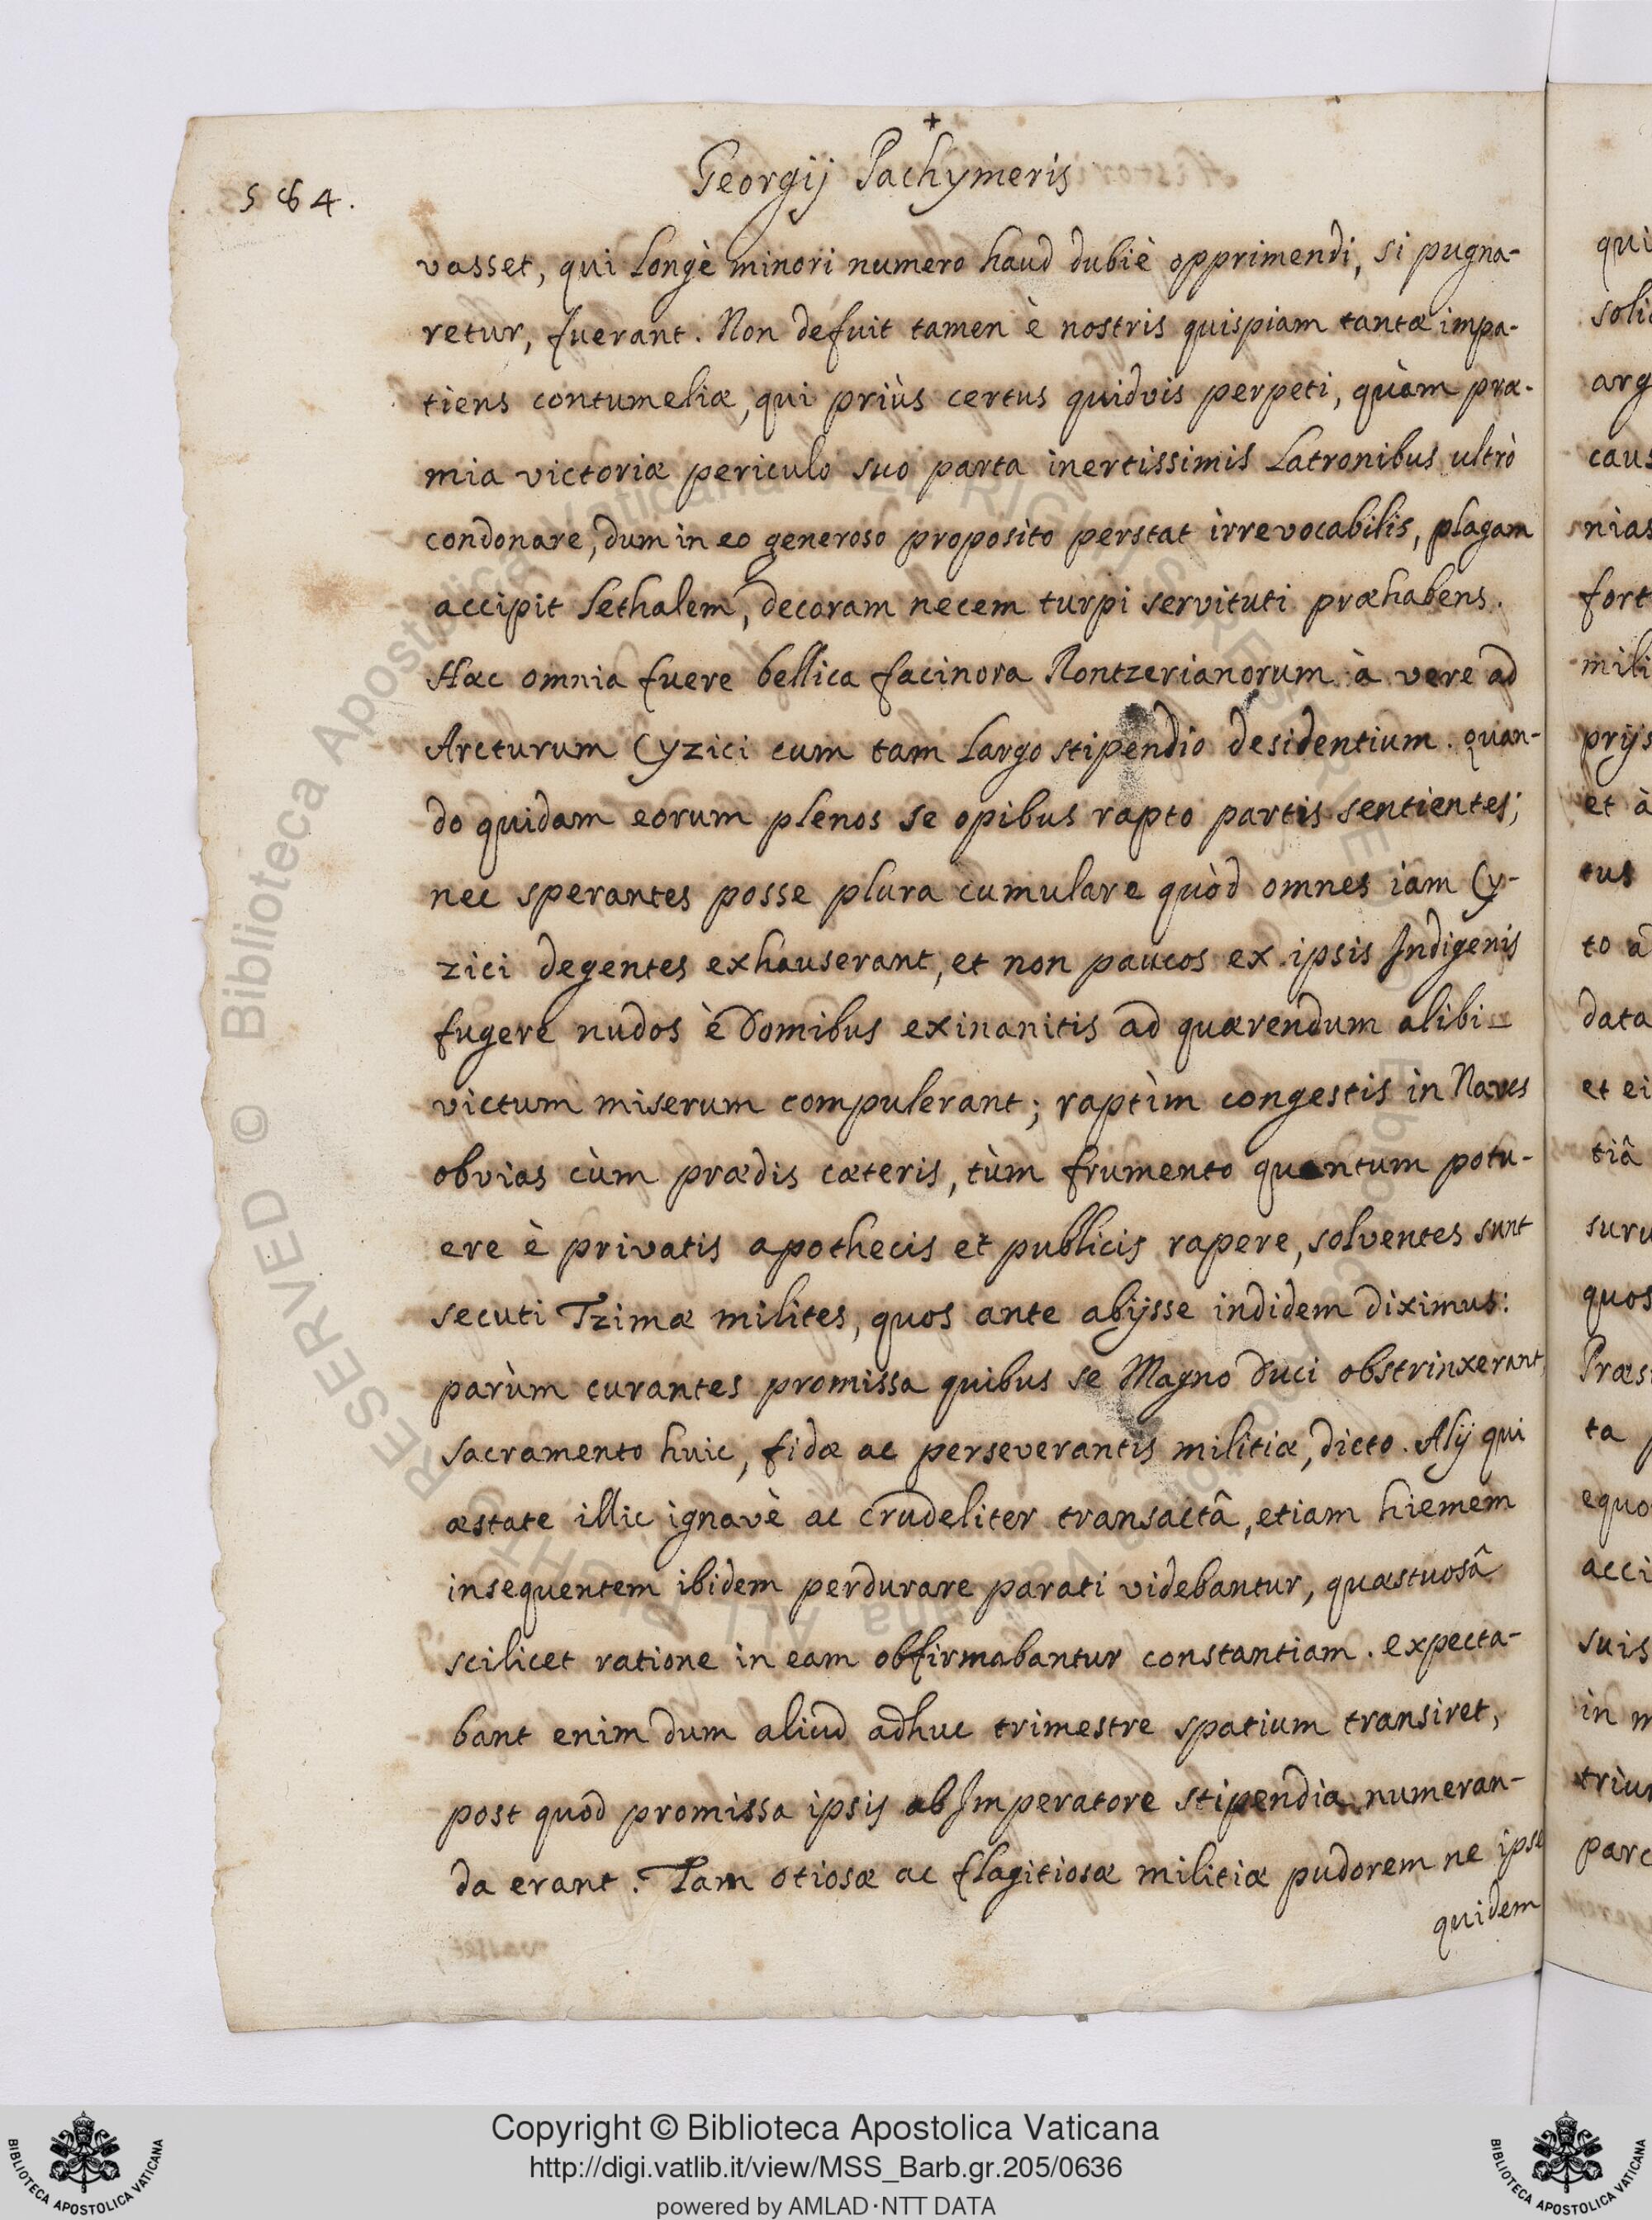 +
Georgij Pachymeris
584.
vasset, qui Longè minori numero haud dubiè opprimendi, si pugna-
retur, fuerant. Non defuit tamen è nostris quispiam tantæ impa-
tiens contumeliæ, qui priùs certus quidvis perpeti, quàm præ-
mia victoriæ periculo suo parta inertissimis Latronibus ultrò
condonare, dum in eo generoso proposito perstat irrevocabilis, plagam
accipit Lethalem, decoram necem turpi servituti præhabens.
Hæc omnia fuere bellica facinora Rontzerianorum à vere ad
Arcturum Cyzici cum tam Largo stipendio desidentium. quan-
do quidam eorum plenos se opibus rapto partis sentientes;
nec sperantes posse plura cumulare quòd omnes iam Cy-
zici degentes exhauserant, et non paucos ex ipsis Indigenis
fugere nudos è Domibus exinanitis ad quærendum alibi
victum miserum compulerant; raptìm congestis in Naves
obvias cùm prædis cæteris, tùm frumento quantum potu-
ere è privatis apothecis et publicis rapere, solventes sunt
secuti Tzimæ milites, quos ante abijsse indidem diximus:
parùm curantes promissa quibus se Magno Duci obstrinxerant,
sacramento huic, fidæ ac perseverantis militiæ, dicto. Alij qui
æstate illic ignavè ac crudeliter transactâ, etiam hiemem
insequentem ibidem perdurare parati videbantur, quæstuosâ
scilicet ratione in eam obfirmabantur constantiam. expecta-
bant enim dum aliud adhuc trimestre spatium transiret,
post quod promissa ipsis ab Imperatore stipendia numeran-
da erant. Tam otiosæ ac flagitiosæ militiæ pudorem ne ipse
quidem
qui
arg
caus
nias
fort
mili
prijs
et à
tus
to a
data
et ei
tiâ
suru
quos
Præs
ta
equo
acci
suis
in m
triur
parc
© Biblioteca Apostolica Vaticana ALL RIGHTS RESERVED
Copyright © Biblioteca Apostolica Vaticana
http://digi.vatlib.it/view/MSS_Barb.gr.205/0636
powered by AMLAD·NTT DATA
BIBLIOTECA APOSTOLICA VATICANA
BIBLIOTECA APOSTOLICA VATICANA